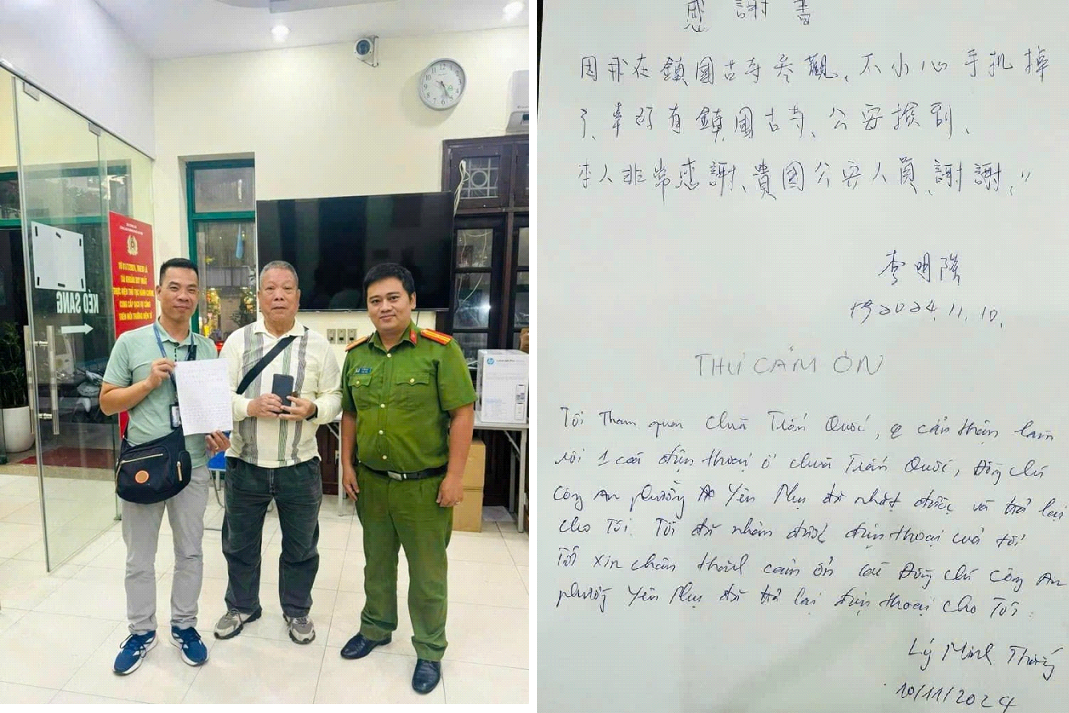 KÉO SANG
hp
感謝書
因我在鎮國古寺参觀、不小心手机掉
了、幸好有鎮國古寺、公安撿到、
本人非常感謝、貴國公安人員、謝謝!!
李明
2024.11.10.
THƯ CẢM ƠN
Tôi Tham quan chùa Trấn Quốc, cẩn thận làm
rơi 1 cái điện thoại ở chùa Trấn Quốc, Đồng chí
Công An phường Yên Phụ đã nhặt được và trả lại
cho Tôi. Tôi đã nhận được điện thoại của tôi
Tôi xin chân thành cảm ơn các Đồng chí Công An
phường Yên Phụ đã trả lại điện thoại cho Tôi.
Lý Minh Thắng
10/11/2024